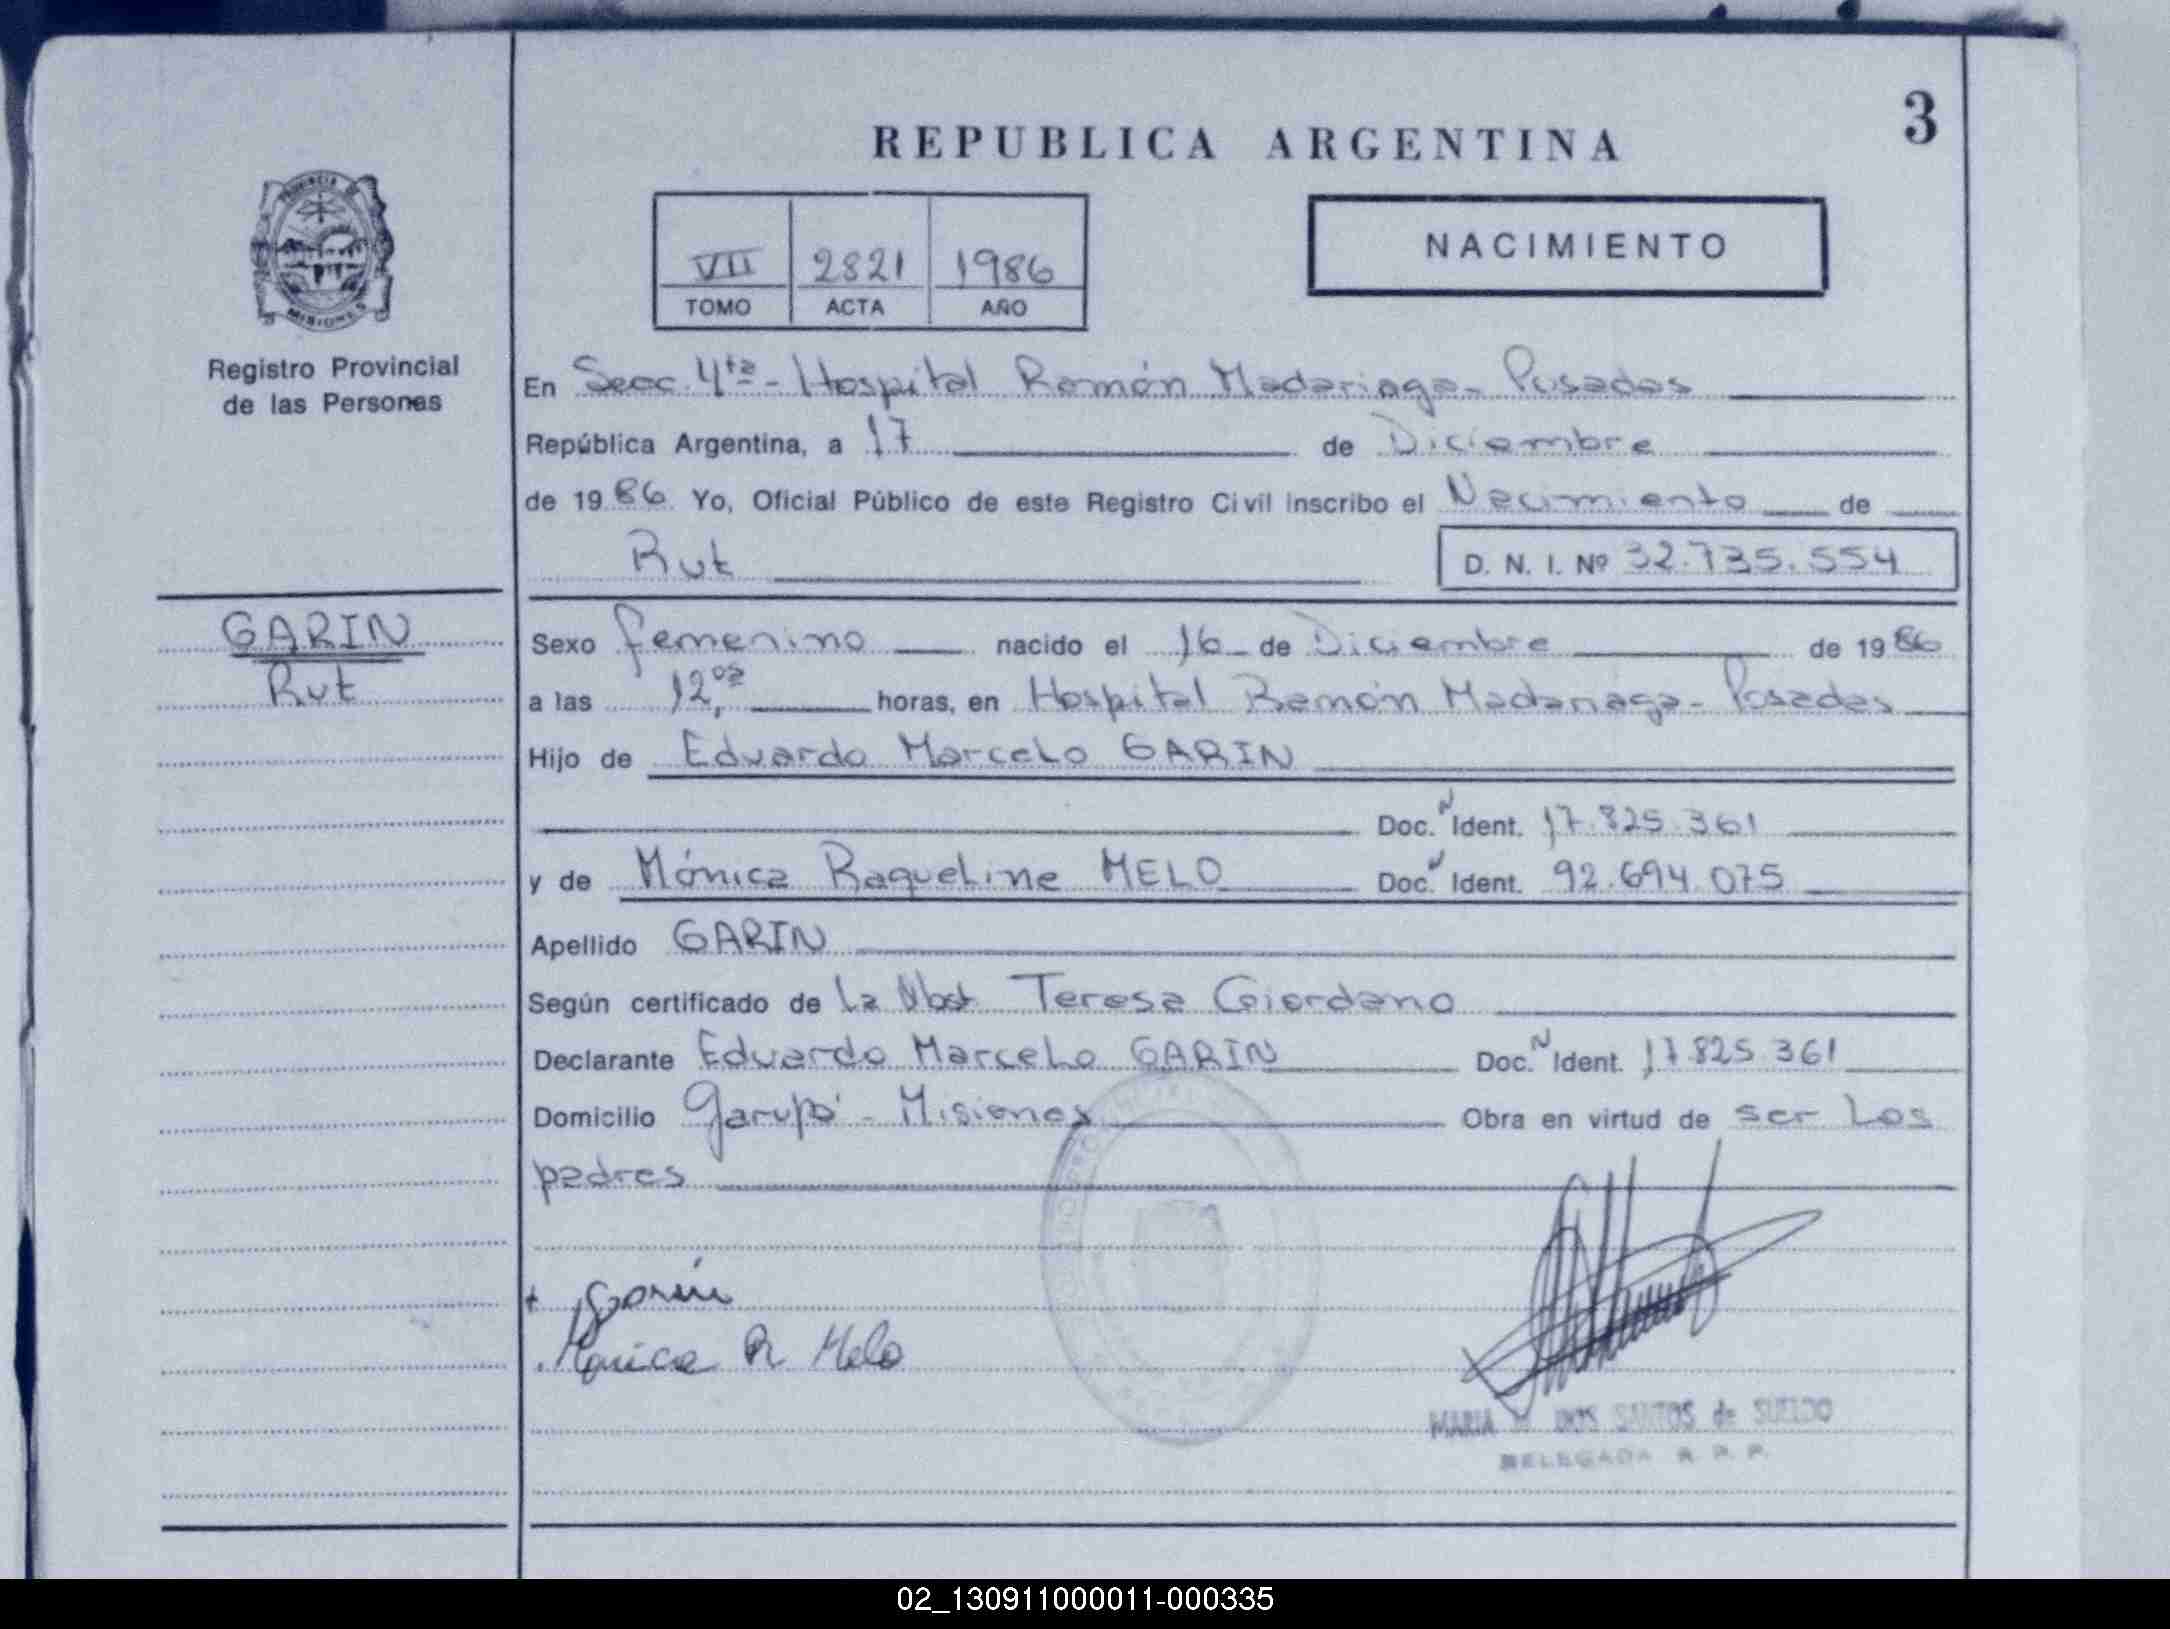 3
REPUBLICA ARGENTINA
PROVINCIA DE
MISIONES
Registro Provincial
de las Personas
VII 2821 1986
TOMO ACTA AÑO
NACIMIENTO
En Secc. 4ta - Hospital Ramón Madariaga - Posadas
República Argentina, a 17 de Diciembre
de 1986. Yo, Oficial Público de este Registro Civil inscribo el Nacimiento de
Rut D. N. I. Nº 32.735.554
GARIN
Rut
Sexo femenino nacido el 16 de Diciembre de 1986
a las 12,02 horas, en Hospital Ramón Madariaga - Posadas
Hijo de Eduardo Marcelo GARIN
Doc. N Ident. 17.825.361
y de Mónica Raqueline MELO Doc. N Ident. 92.694.075
Apellido GARIN
Según certificado de la Obst. Teresa Giordano
Declarante Eduardo Marcelo GARIN Doc. N Ident. 17.825.361
Domicilio Garupá - Misiones Obra en virtud de ser los
padres
Garin
Monica R Melo
MARIA DOS SANTOS de SUELDO
DELEGADA R. P. P.
02_130911000011-000335